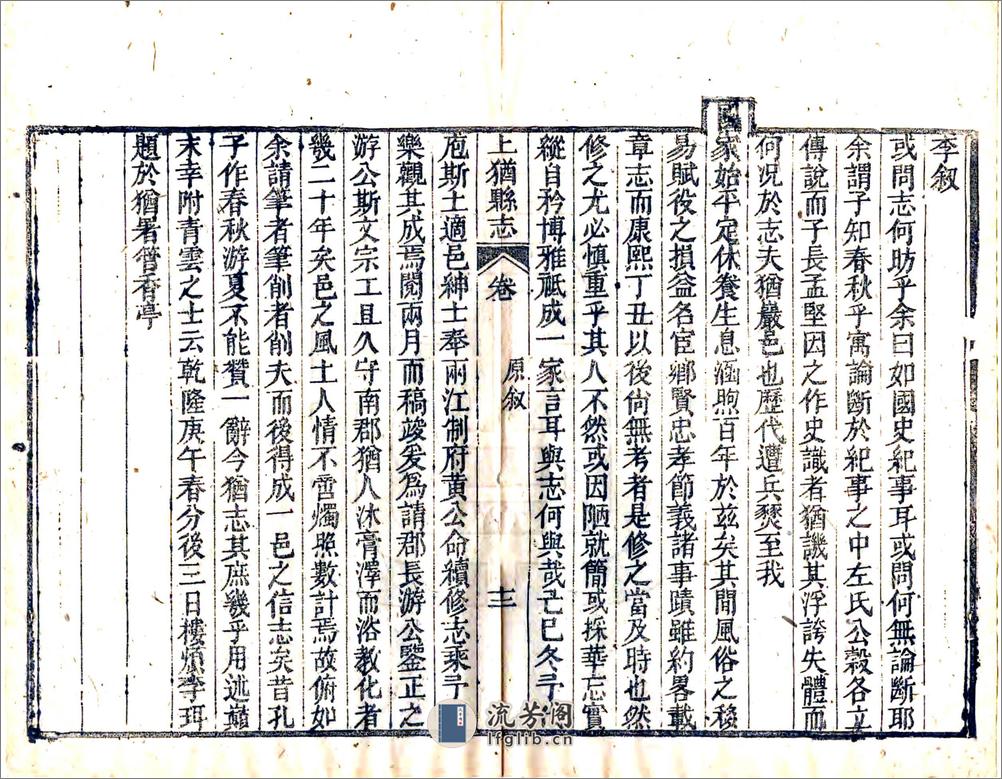 李叙
或問志何昉乎余曰如國史紀事耳或問何無論斷耶
余謂子知春秋乎寓論斷於紀事之中左氏公穀各立
傳說而子長孟堅因之作史識者猶譏其浮誇失體而
何況於志夫猶巖邑也歷代遭兵燹至我
國
家始平定休養生息涵煦百年於兹矣其間風俗之移
易賦役之損益名宦鄉賢忠孝節義諸事蹟雖約畧載
章志而康熙丁丑以後尙無考者是修之當及時也然
修之尤必慎重乎其人不然或因陋就簡或採華忘實
縱自矜博雅祇成一家言耳與志何與哉己巳冬予
上猶縣志 卷 原叙 十二
庖斯土適邑紳士奉兩江制府黄公命續修志乘予
樂觀其成焉閱兩月而稿竣爰為請郡長游公鑒正之
游公斯文宗工且久守南郡猶人沐膏澤而浴教化者
幾二十年矣邑之風土人情不啻燭照數計焉故俯如
余請筆者筆削者削夫而後得成一邑之信志矣昔孔
子作春秋游夏不能贊一辭今猶志其庶幾乎用述巔
末幸附青雲之士云乾隆庚午春分後三日樓煩李珥
題於猶署簪香亭
流芳阁
lfglib.cn